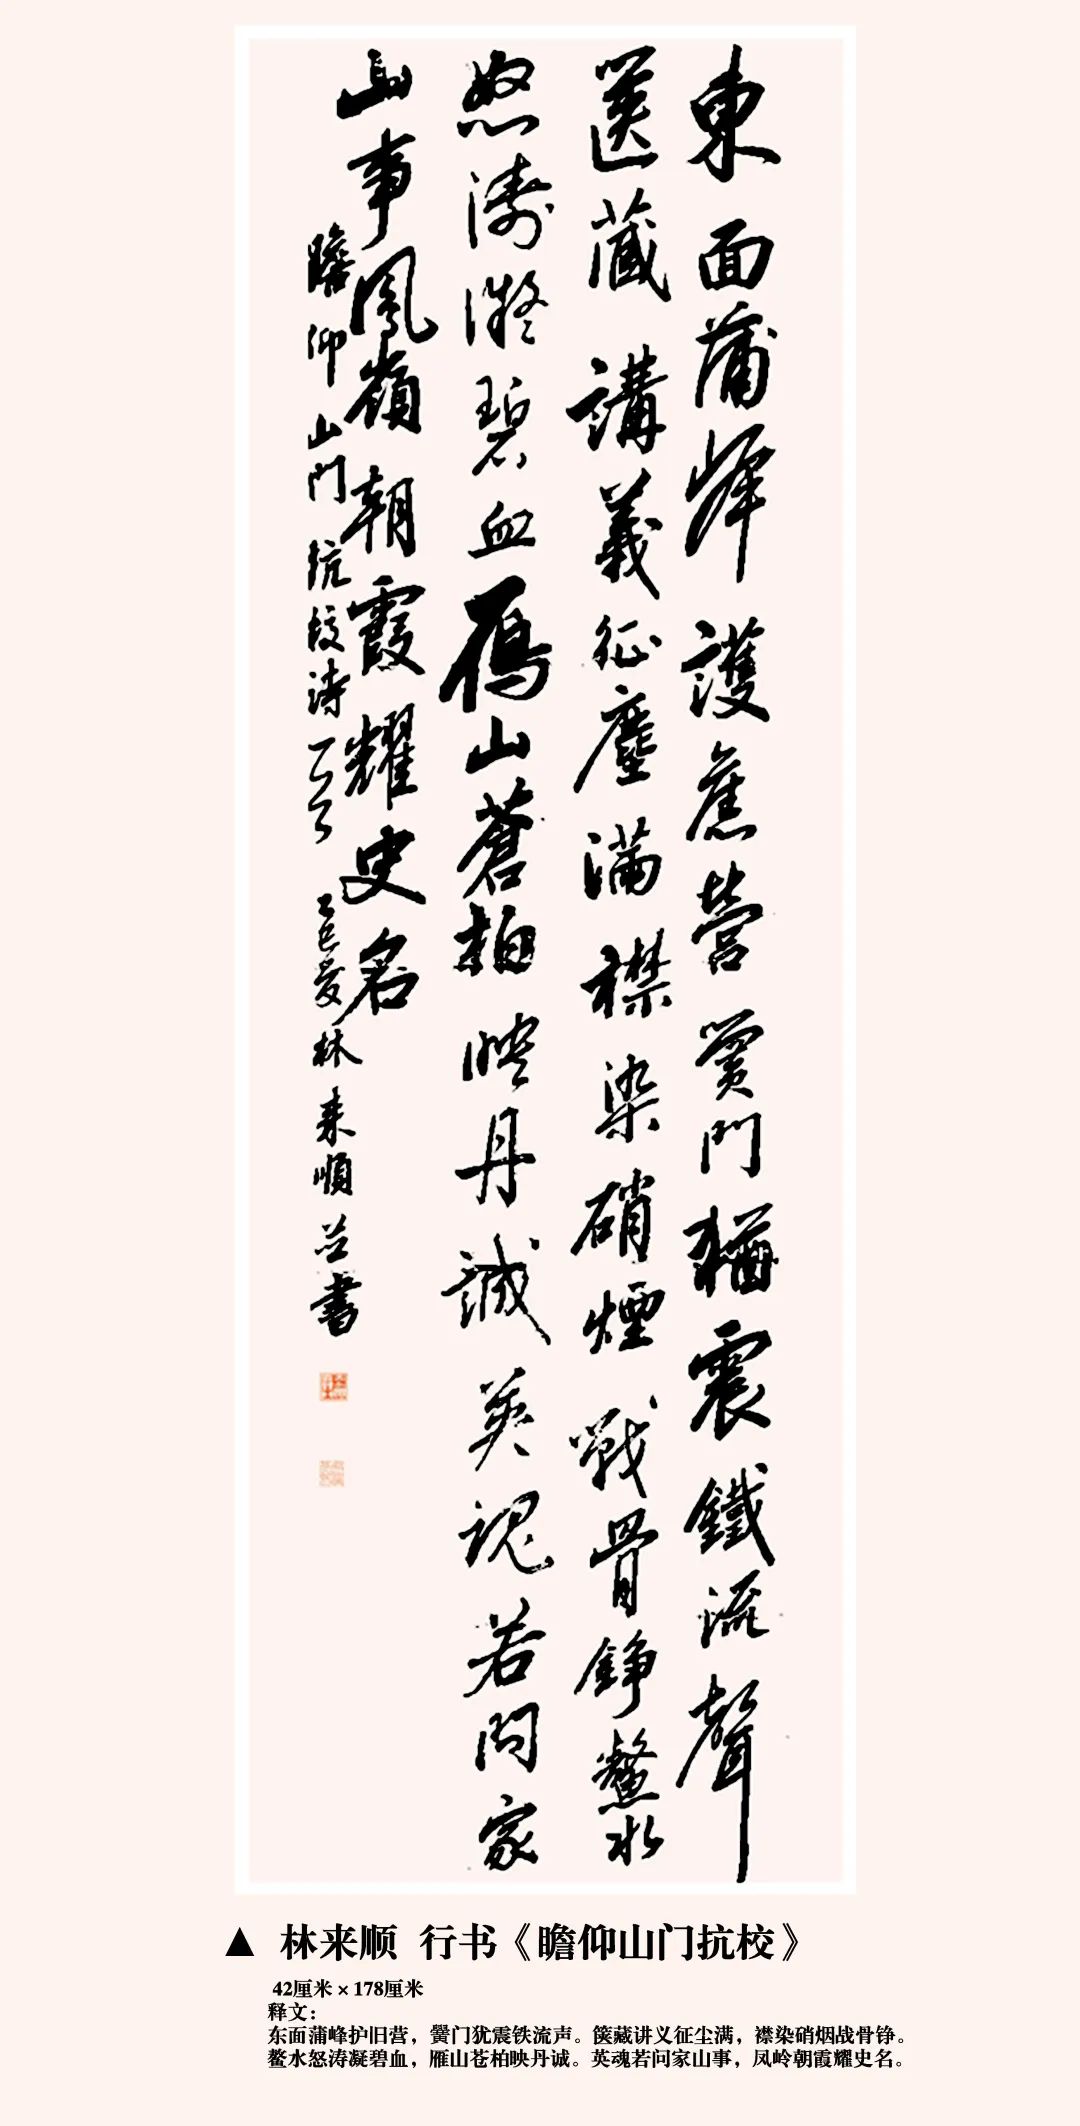 東面蒲峰護舊營黌門猶震鐵流聲
篋藏講義征塵滿襟染硝煙戰骨錚鰲水
怒濤凝碧血雁山蒼柏映丹誠英魂若問家
山事鳳嶺朝霞耀史名
瞻仰山門抗校詩一首 乙巳夏林来順并書
▲ 林来顺 行书《瞻仰山门抗校》
42厘米×178厘米
释文：
东面蒲峰护旧营，黉门犹震铁流声。箧藏讲义征尘满，襟染硝烟战骨铮。
鳌水怒涛凝碧血，雁山苍柏映丹诚。英魂若问家山事，凤岭朝霞耀史名。